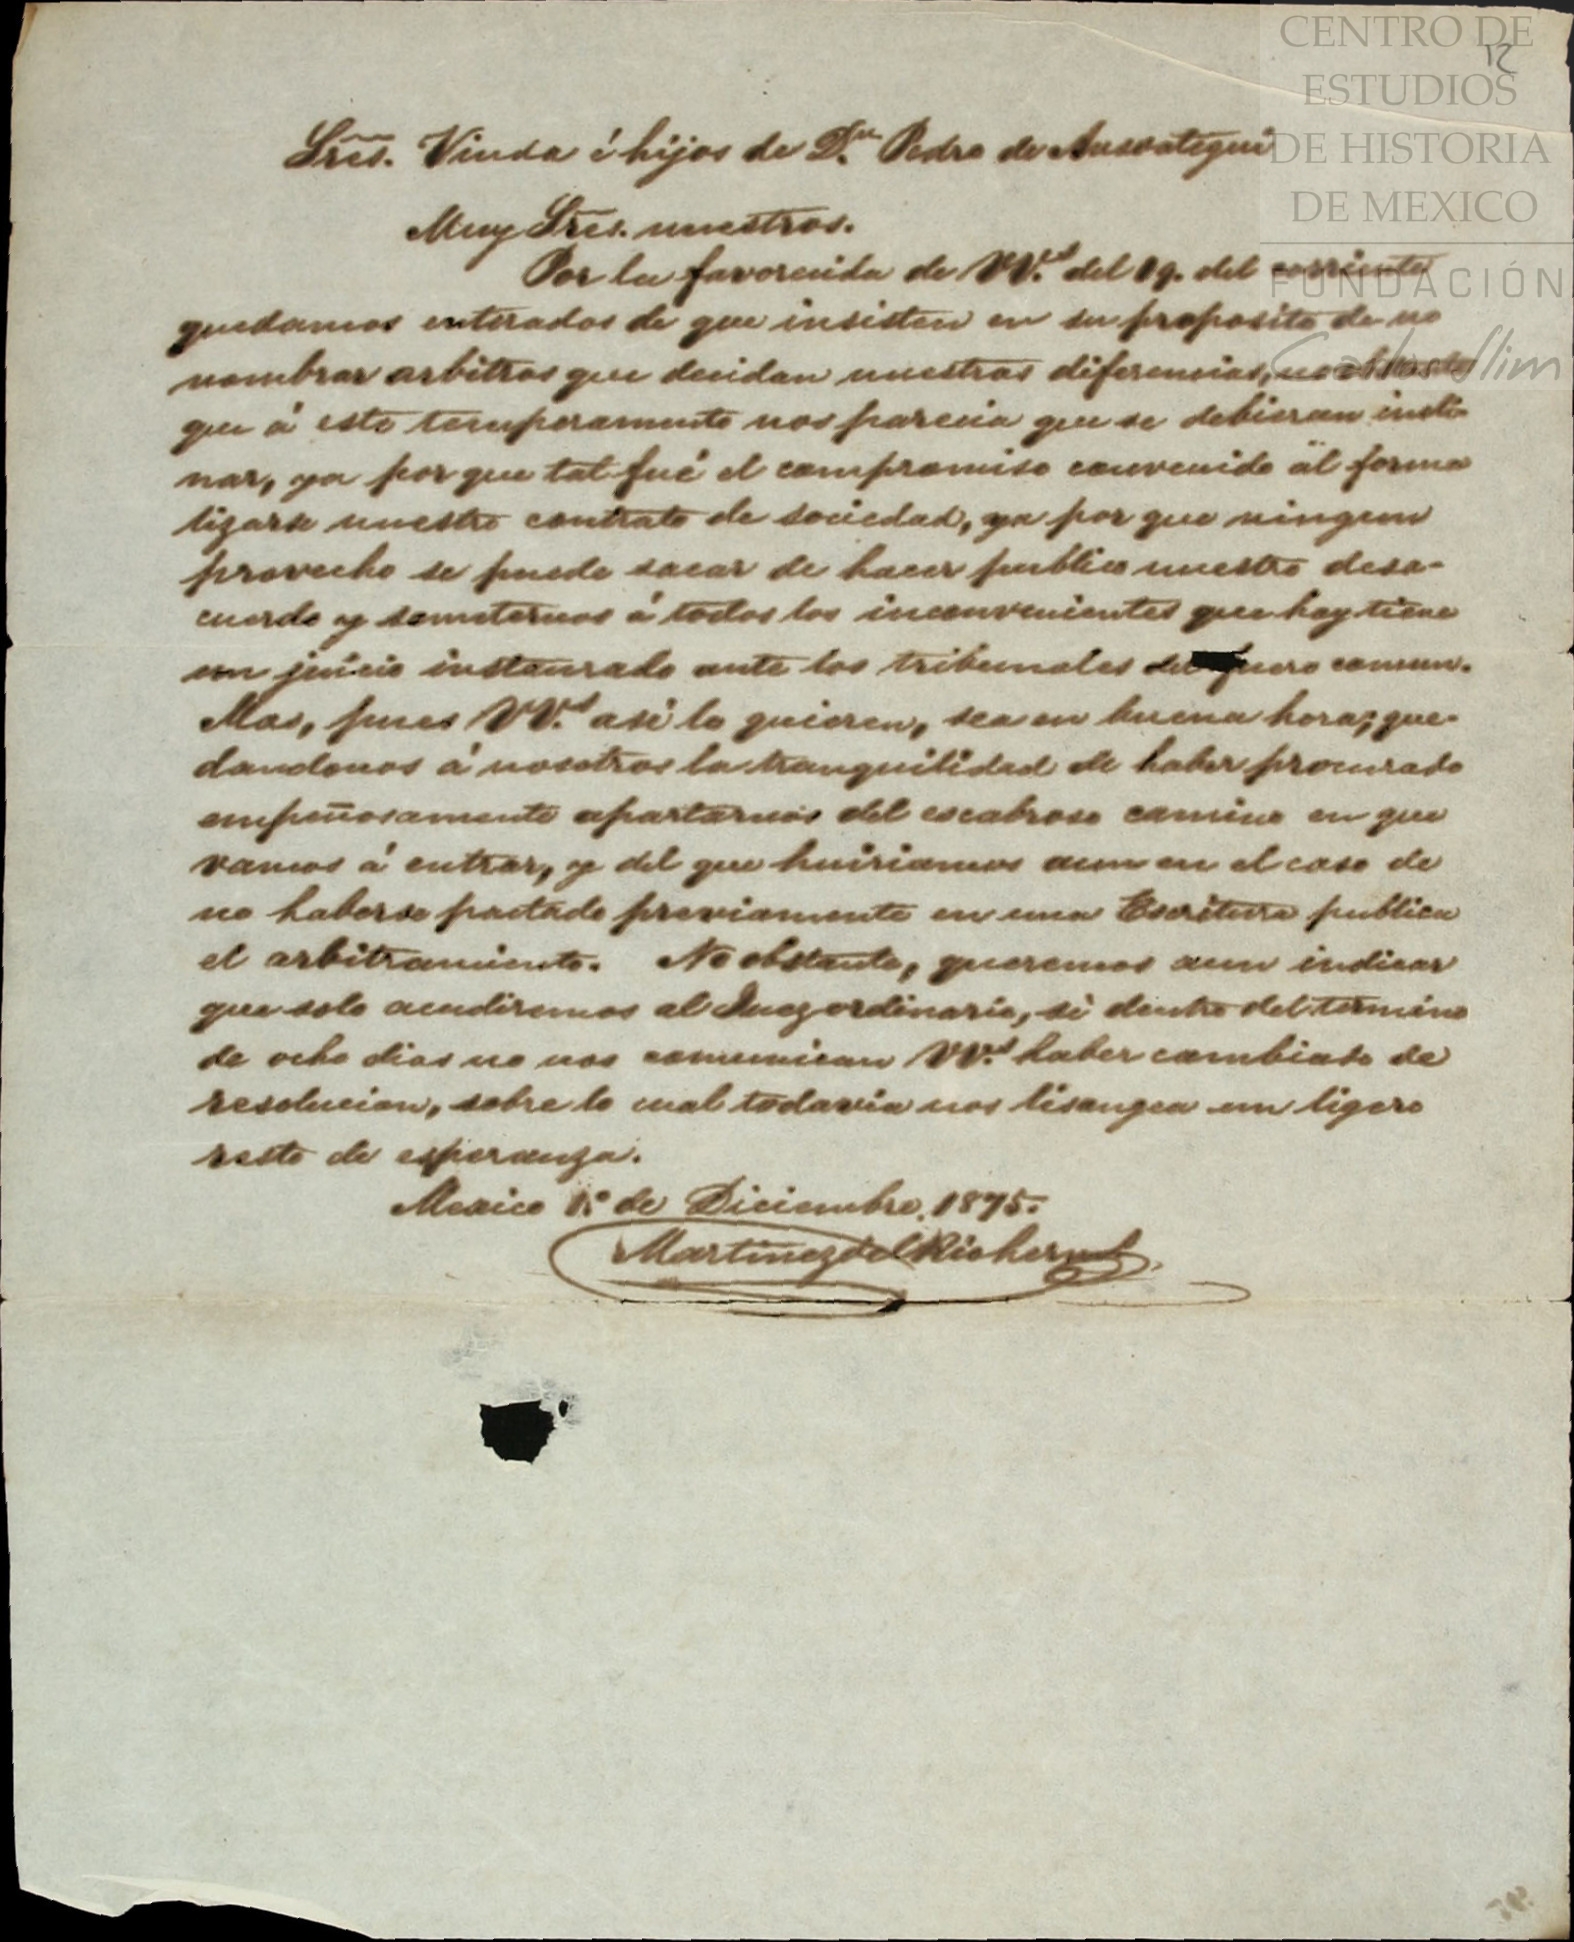 CENTRO DE
ESTUDIOS
DE HISTORIA
DE MEXICO
FUNDACIÓN
Carlos Slim
12
Sres. Viuda é hijos de Dn. Pedro de Ansoategui
Muy Sres. nuestros.
Por la favorecida de VV.s del 19. del corriente
quedamos enterados de que insisten en su proposito de no
nombrar arbitros que decidan nuestras diferencias, no obstante
que á este temperamento nos parecia que se debieran incli-
nar, ya por que tal fué el compromiso convenido al forma
lizarse nuestro contrato de sociedad, ya por que ningun
provecho se puede sacar de hacer publico nuestro desa-
cuerdo y someternos á todos los inconvenientes que hoy tiene
un juicio instaurado ante los tribunales del fuero comun.
Mas, pues VV.s asi lo quieren, sea en buena hora; que-
dandonos á nosotros la tranquilidad de haber procurado
empeñosamente apartarnos del escabroso camino en que
vamos á entrar, y del que huiriamos aun en el caso de
no haberse pactado previamente en una Escritura publica
el arbitramiento. No obstante, queremos aun indicar
que solo acudiremos al Juez ordinario, si dentro del termino
de ocho dias no nos comunican VV.s haber cambiado de
resolucion, sobre lo cual todavia nos lisangea un ligero
resto de esperanza.
Mexico 1.º de Diciembre. 1875.
Martinez del Rio herms.